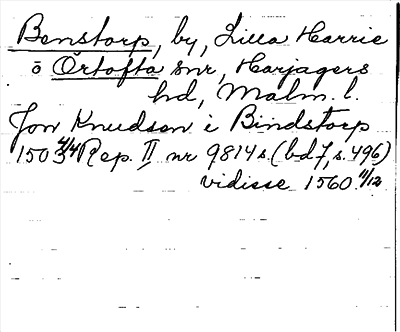 Benstorp, by, Lilla Harrie
o Örtofta snr, Harjagers
hd, Malm. l.
Jon Knudsen i Bindstorp
1503 4/4 Rep. II nr 9814 s. (bd 7, s. 496)
vidisse 1560 11/12